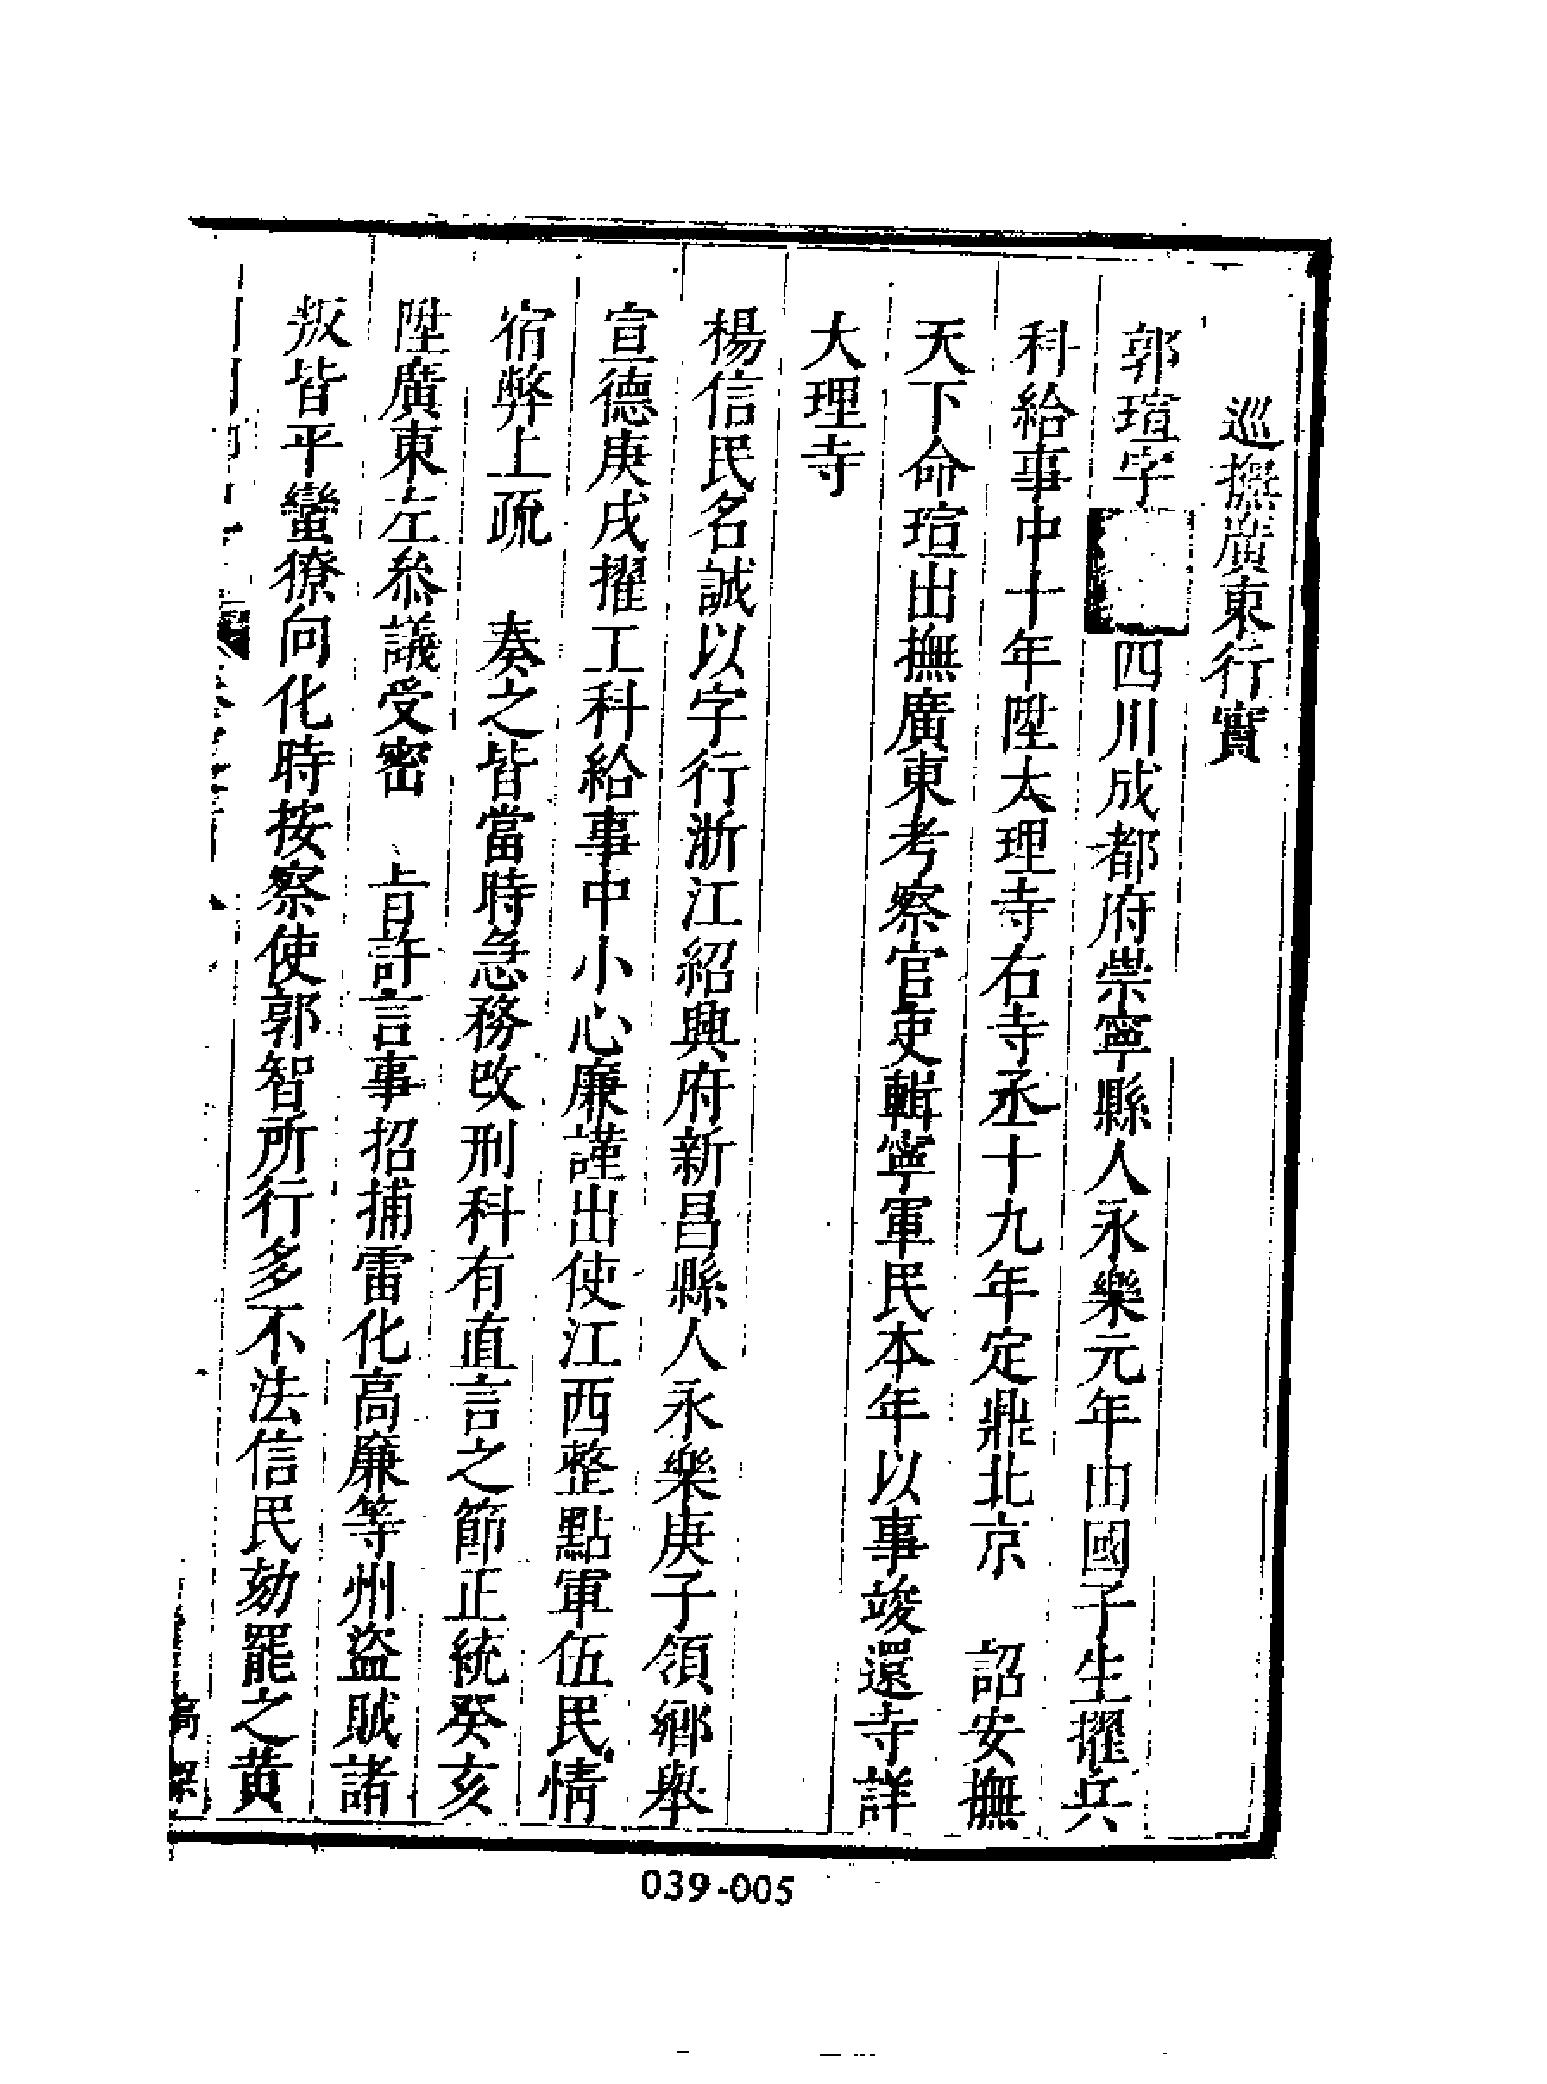 巡撫廣東行實
郭瑄字四川成都府崇寧縣人永樂元年由國子生擢兵
科給事中十年陞大理寺右寺丞十九年定鼎北京　詔安撫
天下命瑄出撫廣東考察官吏輯寧軍民本年以事竣還寺詳
大理寺
楊信民名誠以字行浙江紹興府新昌縣人永樂庚子領鄉舉
宣德庚戌擢工科給事中小心廉謹出使江西整點軍伍民情
宿弊上疏　奏之皆當時急務改刑科有直言之節正統癸亥
陞廣東左叅議受密　旨許言事招捕雷化高廉等州盜賊諸
叛皆平蠻獠向化時按察使郭智所行多不法信民劾罷之黃
039-005